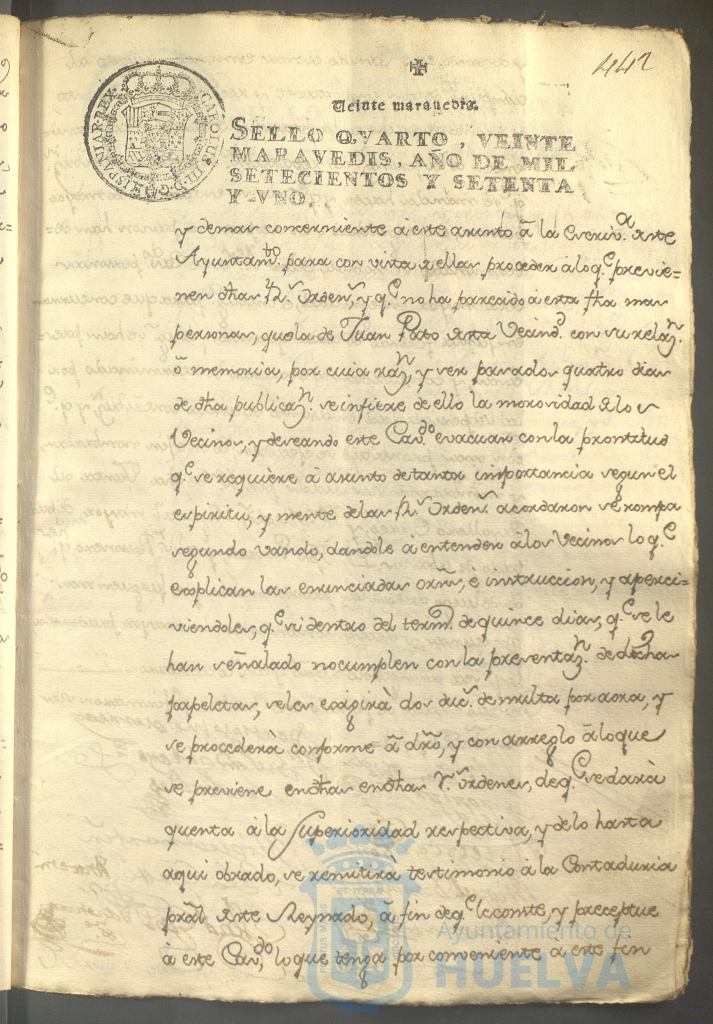 442
CAROLUS III D G HISPANIAR REX
Veinte maravedis.
SELLO QVARTO, VEINTE
MARAVEDIS, AÑO DE MIL
SETECIENTOS Y SETENTA
Y VNO.
y demas concerniente á este asunto â la Escriv.ª deste
Ayuntam.to para con vista de ellas proceder âlo q.e previe=
nen dhas R.s Ordens, y q.e no ha parecido â esta fha mas
personas, que la de Juan Pato desta Vecind.d con su relaz.n
ô memoria, por cuia razn, y ser pasados quatro dias
de dha publicaz.n se infiere de ello la morosidad de los
Vecinos, y deseando este Cav.do evacuar con la prontitud
q.e se requiere â asunto de tanta importancia segun el
espiritu, y mente de las R.s Orden.s acordaron se rompa
segundo vando, dandole â entender âlos Vecinos lo q.e
explican las enunciadas orns, è instruccion, y aperci=
viendoles, q.e si dentro del term.o de quince dias, q.e se le
han señalado no cumplen con la presentaz.n de dichas
papeletas, se les exigirà dos duc.s de multa por aora, y
se procederà conforme â dro, y con arreglo âlo que
se previene en dhas en dhas r.s ordenes, de q.e se darà
quenta â la Superioridad respectiva, y de lo hasta
aqui obrado, se remitirà testimonio â la Contaduria
pral deste Reynado, â fin de q.e le conste, y preceptue
â este Cav.do lo que tenga por conveniente â este fin
Ayuntamiento de
HUELVA